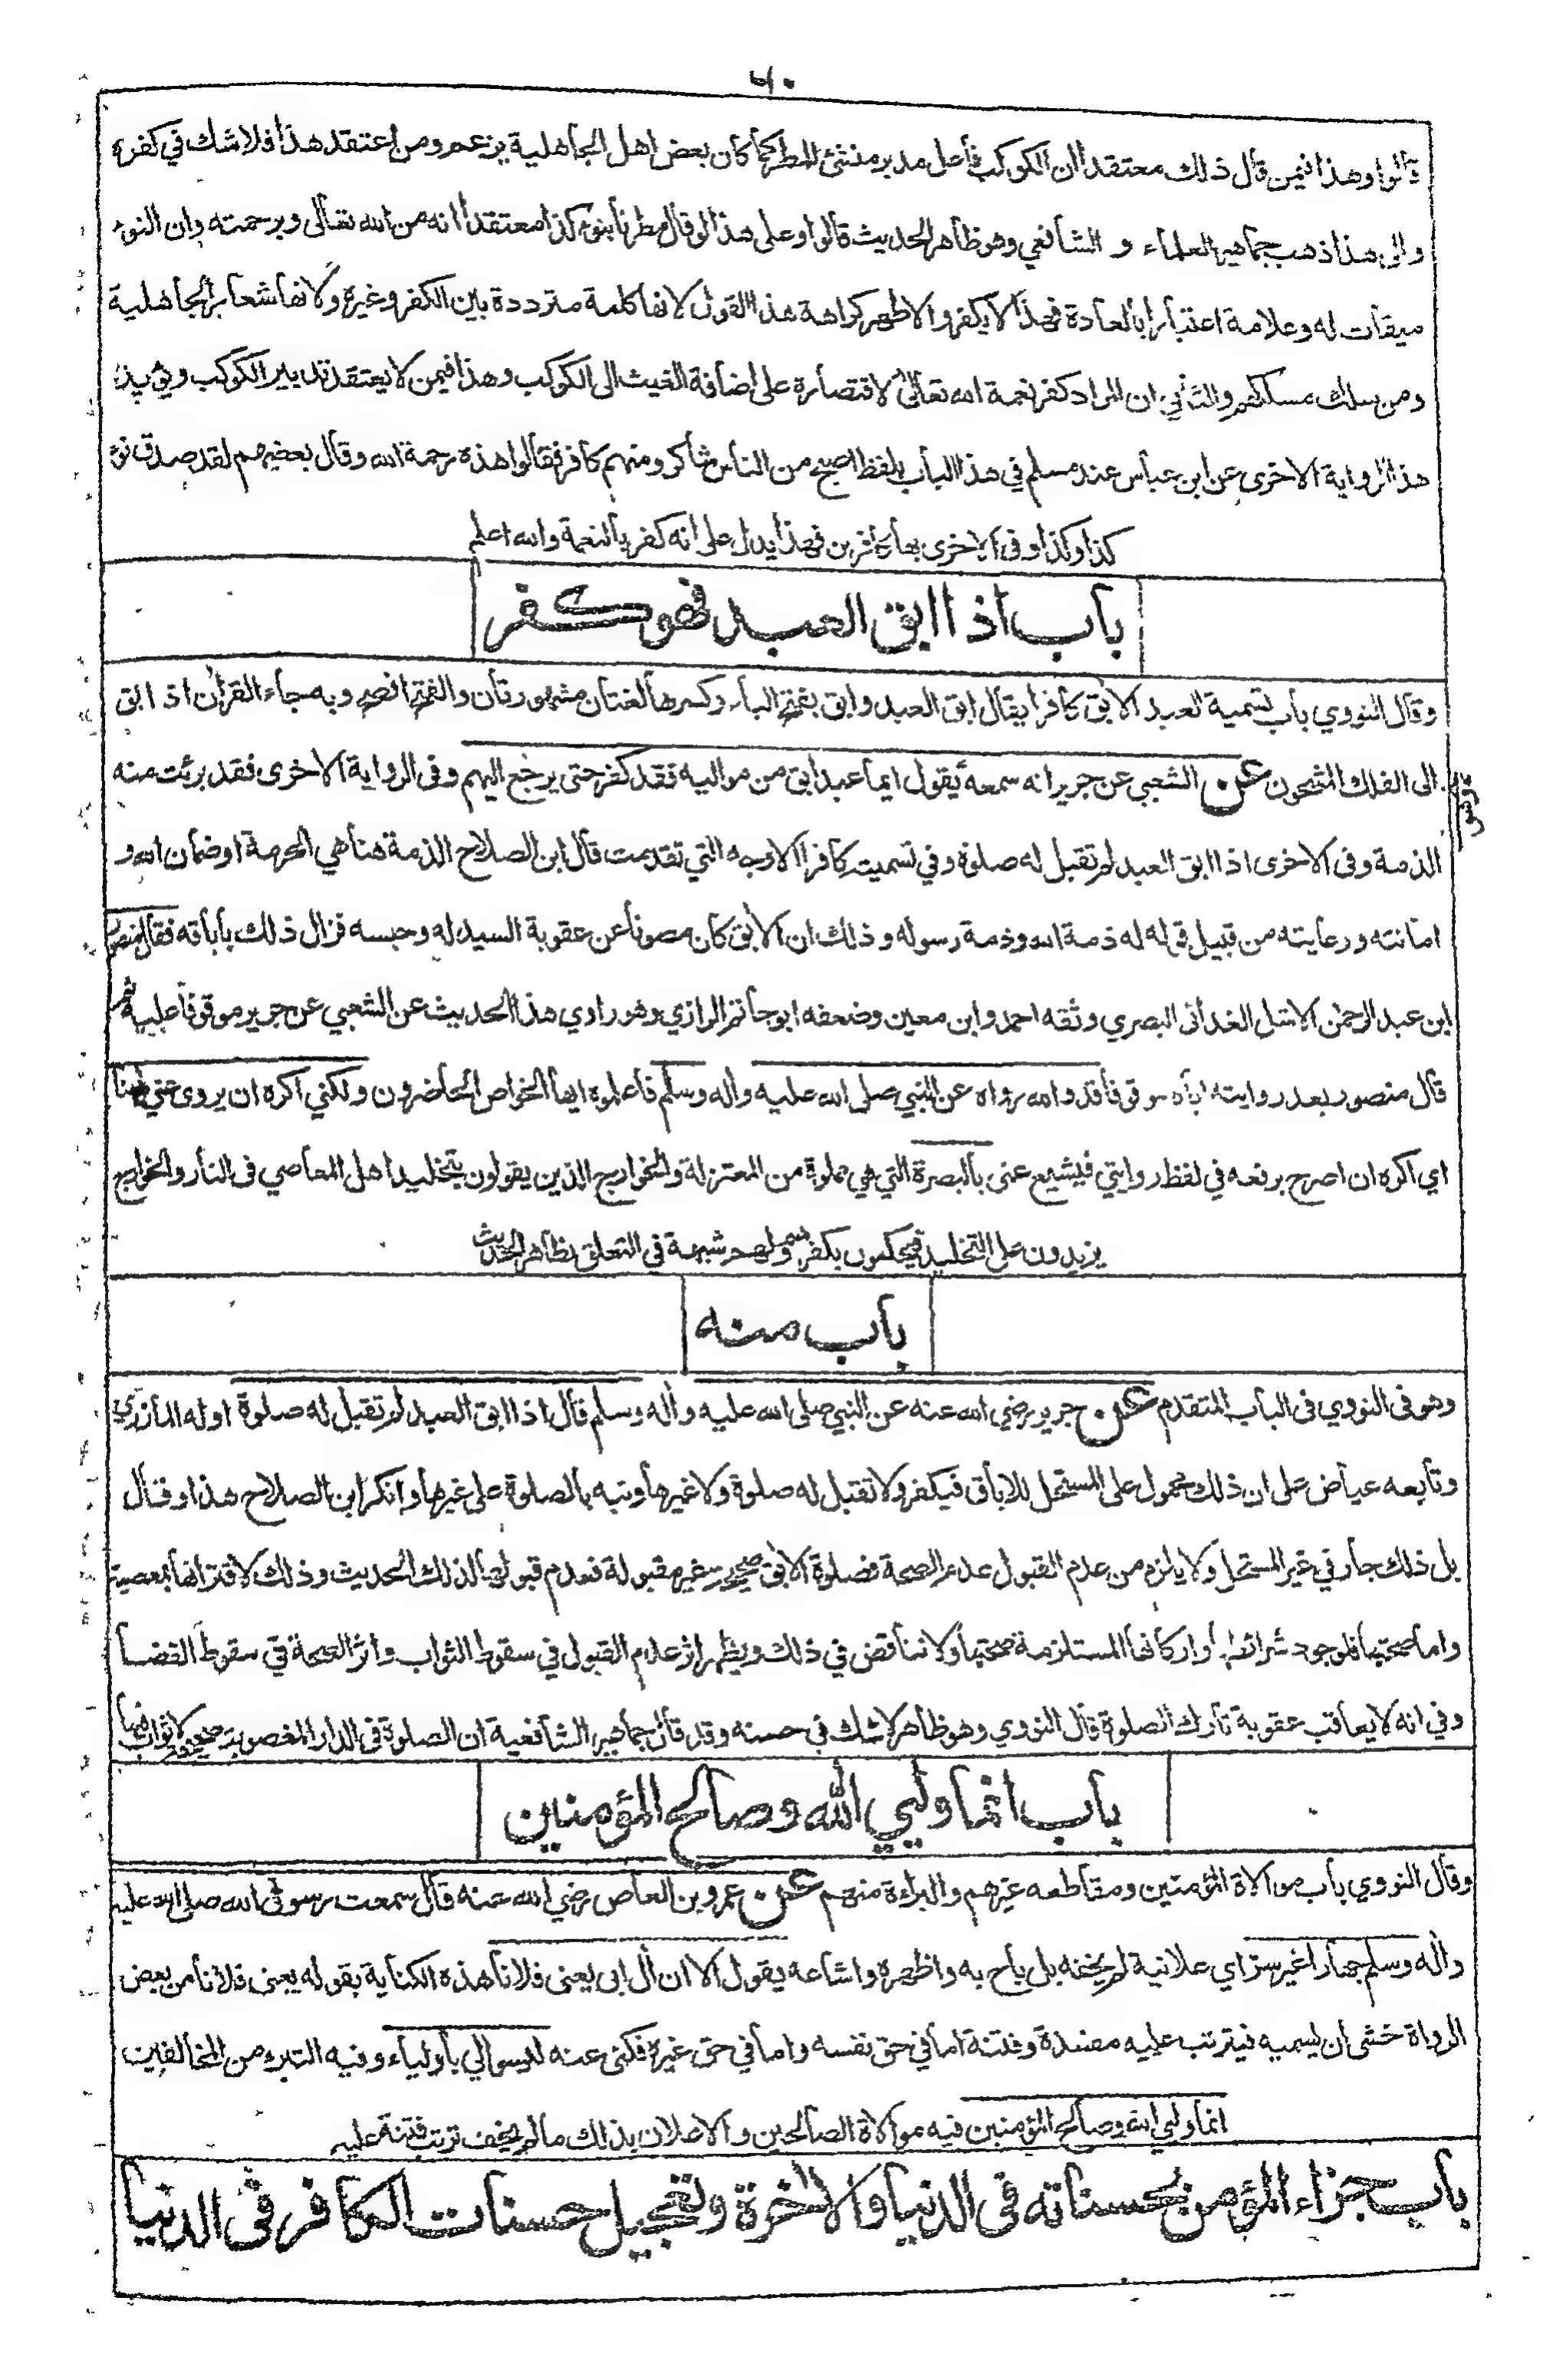 ٦٠
قالوا وهذا فيمن قال ذلك معتقدا ان الكوكب فاعل مدبر منشئ للمطر كما كان بعض اهل الجاهلية يزعم ومن اعتقد هذا فلا شك في كفره
والى هذا ذهب جماهير العلماء و الشافعي وهو ظاهر الحديث قالوا وعلى هذا لو قال مطرنا بنوء كذا معتقدا انه من الله تعالى وبرحمته وان النوء
ميقات له وعلامة اعتبارا بالعادة فهذا لا يكفر والاظهر كراهة هذا القول لانها كلمة مترددة بين الكفر وغيره ولانها شعار الجاهلية
ومن سلك مسلكهم والثاني ان المراد كفر نعمة الله تعالى لاقتصاره على اضافة الغيث الى الكوكب وهذا فيمن لا يعتقد تدبير الكوكب ويؤيد
هذا الرواية الاخرى عن ابن عباس عند مسلم في هذا الباب بلفظ اصبح من الناس شاكر ومنهم كافر فقالوا هذه رحمة الله وقال بعضهم لقد صدق نوء
كذا وكذا وفى الاخرى بها كافرين فهذا يدل على انه كفر بالنعمة والله اعلم
باب اذا ابق العبد فهو كفر
وقال النووي باب تسمية العبد الابق كافرا يقال ابق العبد وابق بفتح الباء وكسرها لغتان مشهورتان والفتح افصح وبه جاء القرأن اذ ابق
الى الفلك المشحون عن الشعبي عن جرير انه سمعه يقول ايما عبد ابق من مواليه فقد كفر حتى يرجع اليهم وفى الرواية الاخرى فقد برئت منه
الذمة وفى الاخرى اذا ابق العبد لم تقبل له صلوة وفي تسميته كافرا الاوجه التي تقدمت قال ابن الصلاح الذمة هنا هي الحرمة او ضمان الله و
امانته ورعايته من قبيل قوله له ذمة الله وذمة رسوله وذلك ان الابق كان مصونا عن عقوبة السيد له وحبسه فزال ذلك باباقه فقال منصور
ابن عبد الرحمن الاشل الغدانى البصري وثقه احمد وابن معين وضعفه ابو حاتم الرازي وهو راوي هذا الحديث عن الشعبي عن جرير موقوفا عليه ثم
قال منصور بعد روايته اياه موقوفا قد والله رواه عن النبي صلى الله عليه وأله وسلم فاعلموه ايها الخواص الحاضرون ولكني اكره ان يروى عني ههنا
اي اكره ان اصرح برفعه في لفظ روايتي فيشيع عنى بالبصرة التي هي مملوة من المعتزلة والخوارج الذين يقولون بتخليد اهل المعاصي فى النار والخوارج
يزيدون على التخليد فيحكمون بكفرهم ولهم شبهة في التعلق بظاهر الحديث
باب منه
وهو فى النووي فى الباب المتقدم عن جرير رضي الله عنه عن النبي صلى الله عليه وأله وسلم قال اذا ابق العبد لم تقبل له صلوة اوله المازري
وتابعه عياض على ان ذلك محمول على المستحل للاباق فيكفر ولا تقبل له صلوة ولا غيرها ونبه بالصلوة على غيرها وانكر ابن الصلاح هذا وقال
بل ذلك جار في غير المستحل ولا يلزم من عدم القبول عدم الصحة فصلوة الابق صحيحة غير مقبولة فعدم قبولها لذلك الحديث وذلك لاقترانها بمعصية
واما صحتها فلوجود شرائطها واركانها المستلزمة صحتها ولا تناقض في ذلك ويظهر اثر عدم القبول في سقوط الثواب واثر الصحة في سقوط القضا
وفي انه لا يعاقب عقوبة تارك الصلوة قال النووي وهو ظاهر لا شك فى حسنه وقد قال جماهير الشافعية ان الصلوة فى الدار المغصوبة صحيحة لا ثواب فيها
باب انما وليي الله وصالح المؤمنين
وقال النووي باب موالاة المؤمنين ومقاطعه غيرهم والبراءة منهم عن عمرو بن العاص رضي الله عنه قال سمعت رسول الله صلى الله عليه
وأله وسلم جهارا غير سر اي علانية لم يخفه بل باح به واظهره واشاعه يقول الا ان أل ابى يعنى فلانا هذه الكناية بقوله يعنى فلانا من بعض
الرواة خشى ان يسميه فيترتب عليه مفسدة وفتنة اما في حق نفسه واما في حق غيره فكنى عنه ليسوا لي باولياء وفيه التبرء من المخالفين
انما وليي الله وصالح المؤمنين فيه موالاة الصالحين والاعلان بذلك ما لم يخف ترتب فتنة عليه
باب جزاء المؤمن بحسناته فى الدنيا والأخرة وتعجيل حسنات الكافر فى الدنيا